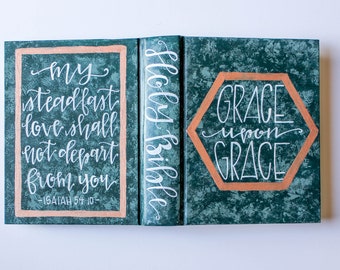 my
steadfast
love shall
not depart
from you
-ISAIAH 54:10-
Holy Bible
GRACE
upon
GRACE